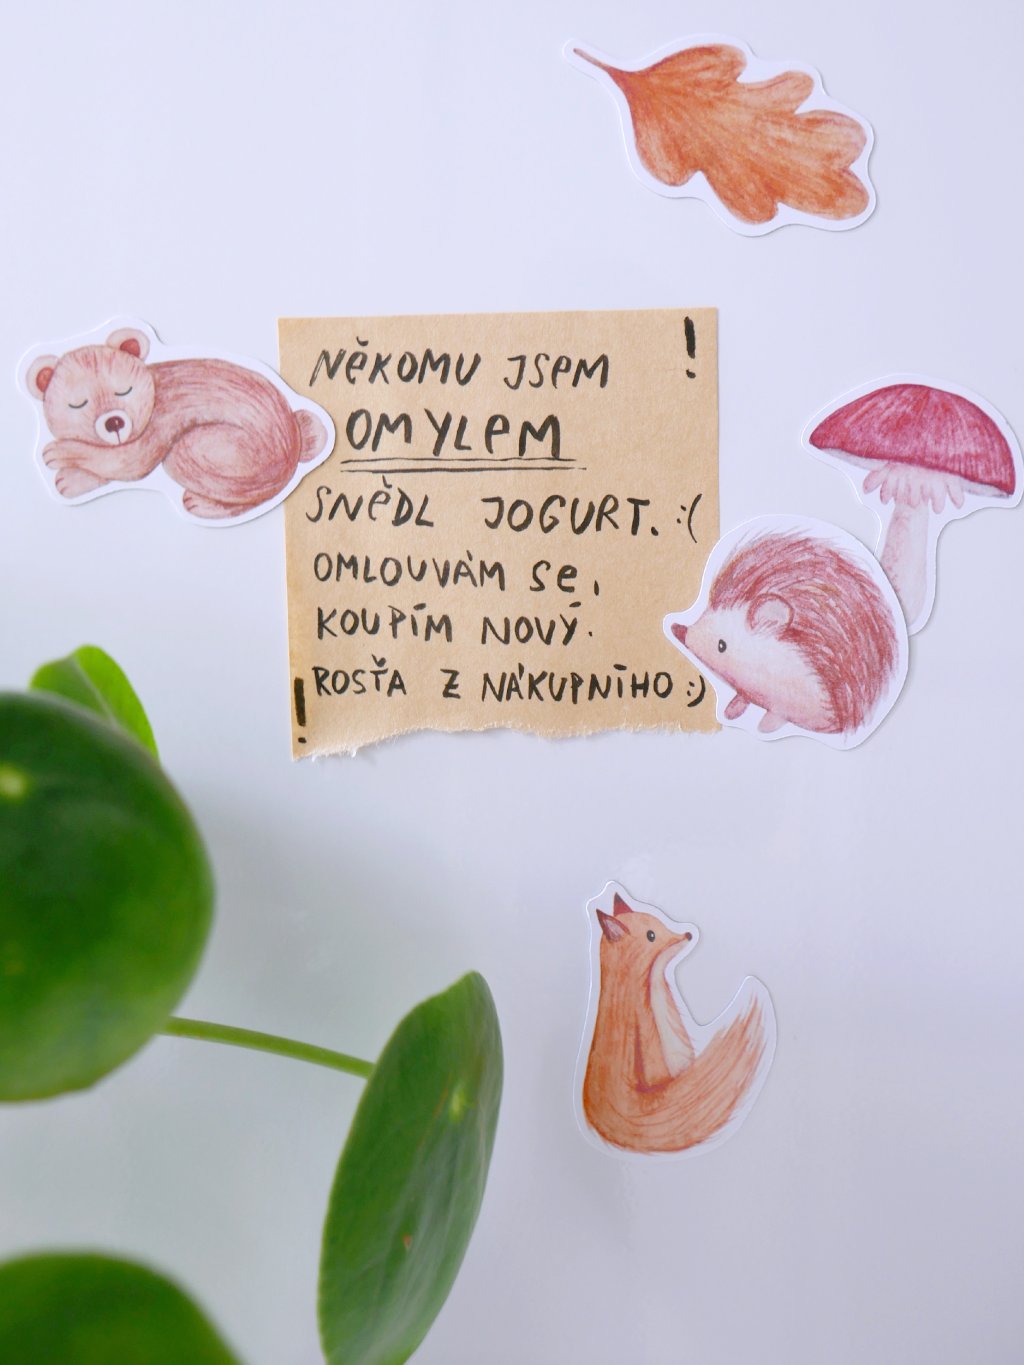 NĚKOMU JSEM !
OMYLEM
SNĚDL JOGURT. :(
OMLOUVÁM SE,
KOUPÍM NOVÝ.
! ROSŤA Z NÁKUPNÍHO :)